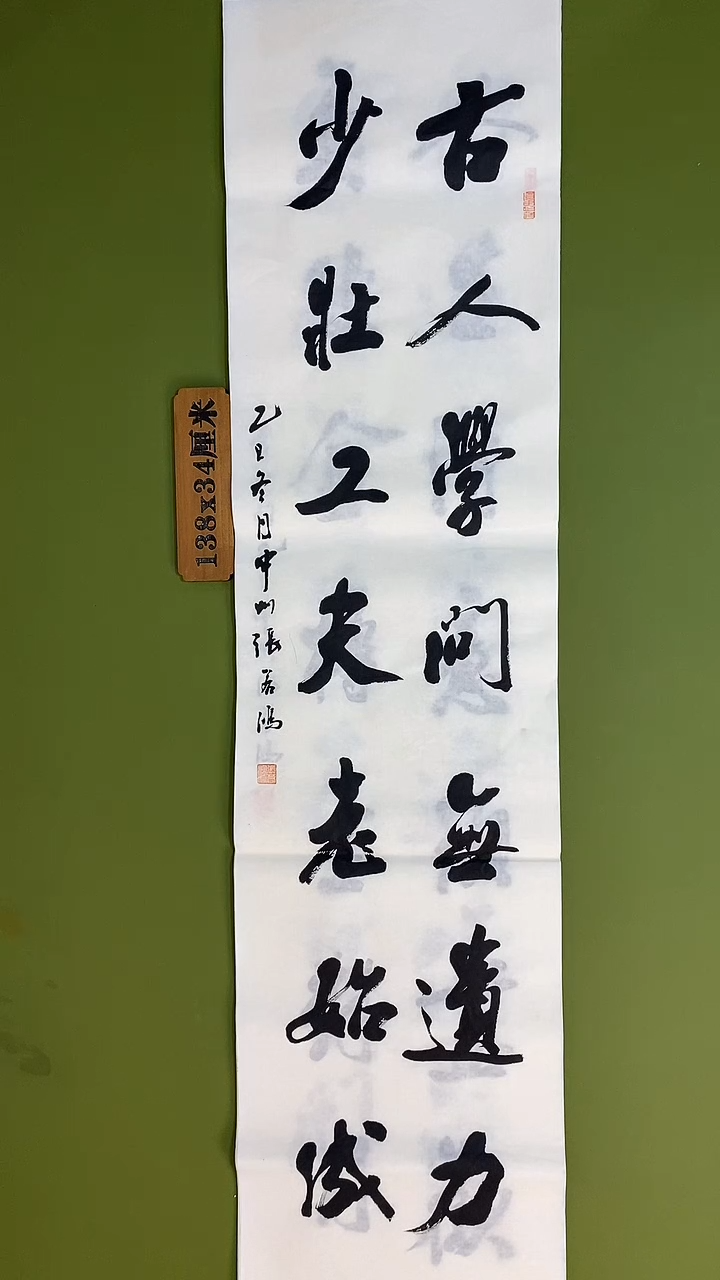 古人學問無遺力
少壯工夫老始成
乙巳冬月中州張若鴻
138x34厘米